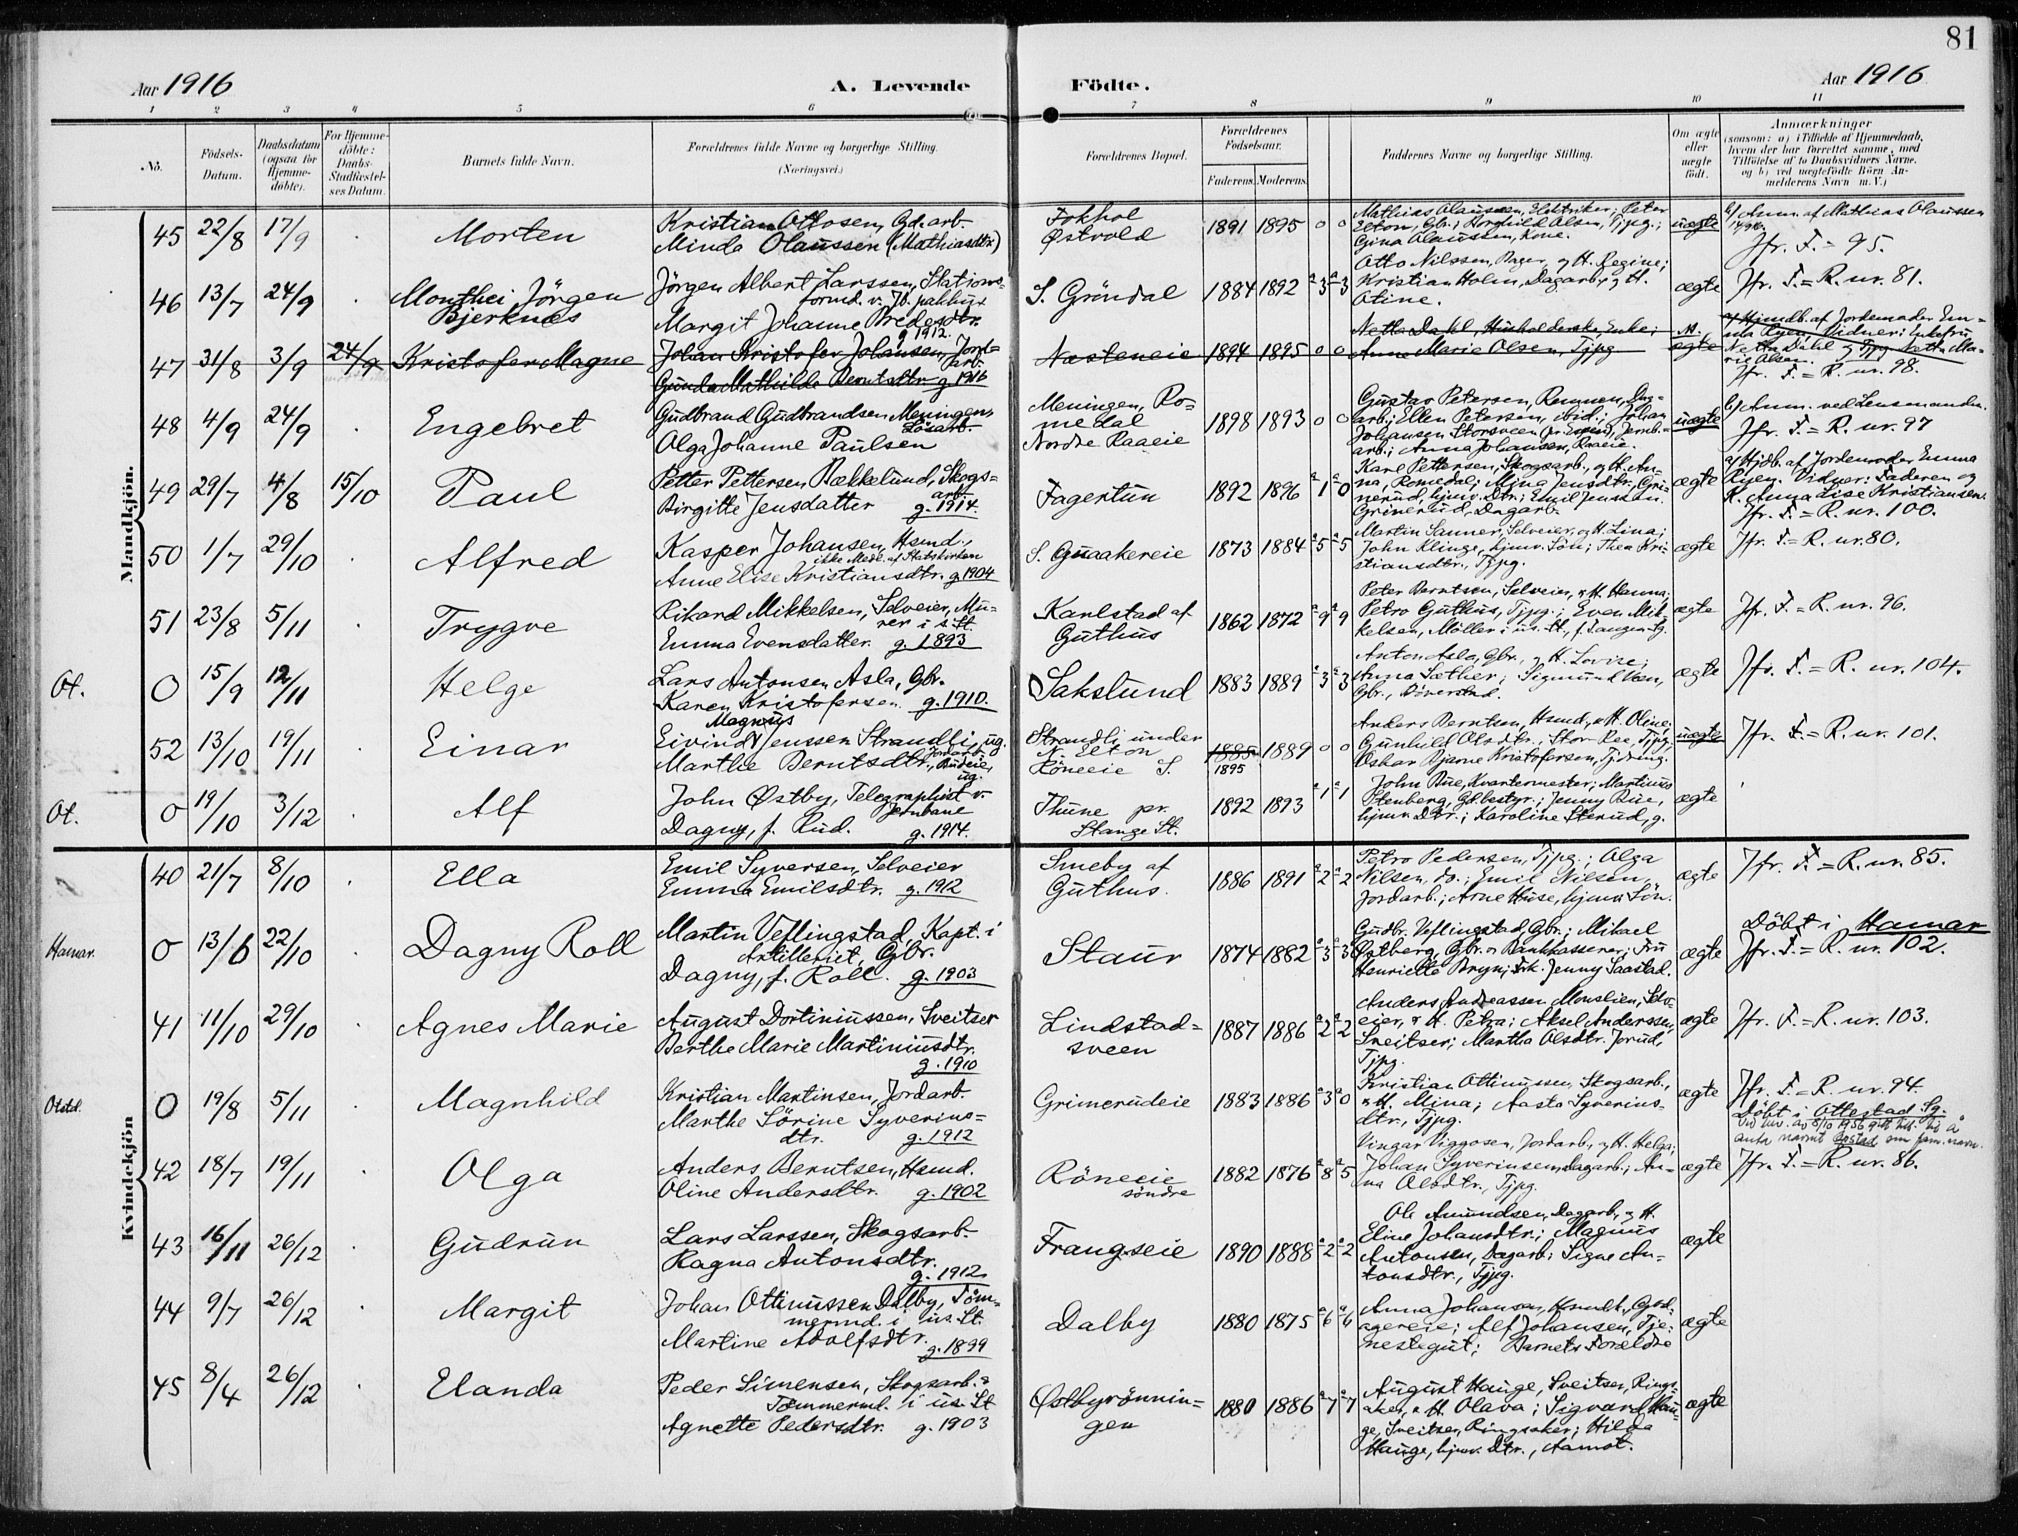 81
Aar 1916
A. Levende Födte.
Aar 1916
1 2 3 4 5 6 7 8 9 10 11
No.
Födsels-Datum.
Daabsdatum (ogsaa for Hjemme-döbte).
For Hjemme-döbte: Daabs-Stadfæstel-ses Datum.
Barnets fulde Navn.
Forældrenes fulde Navne og borgerlige Stilling. (Næringsvei.)
Forældrenes Bopæl.
Forældrenes Födselsaar.
Faderens. Moderens.
Faddernes Navne og borgerlige Stilling.
Om ægte eller uægte födt.
Anmærkninger
(saasom: a) i Tilfælde af Hjemmedaab,
hvem der har forrettet samme, med
Tilföielse af to Daabsvidners Navne.
og b) ved uægtefödte Börn An-
melderens Navn m. V.)
Mandkjön.
45 22/8 17/9 Morten
Kristian Ottosen, Gd.arb.
Minda Olaussen (Mathiasdtr)
Fokhol
Østvold
1891 1895 0 0
Mathias Olaussen, Elektriker; Peter
Elton, Gbr.; Borghild Olsen, Tjpg.;
Gina Olaussen, Kone.
uægte
b) Anm. af Mathias Olaussen
Jfr. F. = 95.
46 13/7 24/9 Monthei Jörgen
Bjerknæs
Jörgen Albert Larssen, Stations-
formd. v. Jb. pakhus
Margit Johanne Bredesdtr.
g 1912.
S. Gröndal
1884 1892 3 3
Otto Nilssen, Bager, og H. Regine;
Kristian Holm, Dagarb., og H.
Otine.
ægte
Jfr. F. = R. nr. 81.
47 31/8 3/9 24/9 Kristofer Magne
Johan Kristofer Johansen, Jord-
arb.
Gunda Mathilde Berntsdtr g 1916
Næsteneie
1894 1895 0 0
Netta Dahl, Husholderske, Enke;
Anne Marie Olsen, Tjpg
ægte
a) Hjmdb. af Jordemoder Em-
ma Ryen. Vidner: Enkefru
Netta Dahl og Tjpg Netta Ma-
rie Olsen.
Jfr. F. = R. nr. 98.
48 4/9 24/9 Engebret
Gudbrand Gudbrandsen Meningen,
Lösarb.
Olga Johanne Paulsen
Meningen, Ro-
medal
Nordre Raaeie
1898 1893 0 0
Gustav Petersen, Remmen, Dag-
arb.; Ellen Petersen, ibid.; Johan
Johansen Storsveen pr. Espind, Jernb.-
arb.; Anna Johansen, Raaeie.
uægte
b) Anm. ved Lensmanden.
Jfr. F. = R. nr. 97
49 29/7 4/8 15/10 Paul
Petter Pettersen Bækkelund, Skogs-
arb.
Birgitte Jensdatter g. 1914.
Fagertun
1892 1896 1 0
Karl Pettersen, Skogsarb., og H. An-
na, Romedal; Mina Jensdtr. Gri-
nerud, hjmv. Dtr.; Emil Jensen
Grinerud, Dagarb.
ægte
a) Hjdb. af Jordemoder Emma
Ryen. Vidner: Faderen og
K. Anna Lise Kristiansen.
Jfr. F. = R. nr. 100.
50 1/7 29/10 Alfred
Kasper Johansen, Hsmd.,
ikke Medl. af Statskirken
Anne Elise Kristiansdtr. g 1904
S. Guaakereie
1873 1884 5 5
Martin Sanner, Selveier, og H. Lina;
John Klinge, hjmv. Sön; Thea Kri-
stiansdtr., Tjpg.
ægte
Jfr. F. = R. nr. 80.
51 23/8 5/11 Trygve
Rikard Mikkelsen, Selveier, Mu-
rer i s. St.
Emma Evensdatter. g. 1893
Karlstad af
Guthus
1862 1872 9 9
Peter Berntsen, Selveier, & H. Hanna;
Petro Guthus, Tjpg.; Even Mik-
kelsen, Möller i us. St., f. Tangen Sg.
ægte
Jfr. F. = R. nr. 96.
Ot. 0 15/9 12/11 Helge
Lars Antonsen Asla, Gbr.
Karen Kristofersen g. 1910.
Sakslund
1883 1889 3 3
Anton Asla, Gbr., og H. Lovise;
Anna Sæther; Sigmund Veen,
Gbr., Döverstad.
ægte
Jfr. F. = R. nr. 104.
52 13/10 19/11 Einar
Magnus
Eivind Jenssen Strandli, ug.
Jordarb.
Marthe Berntsdtr., Budeie,
ug.
Strandli under
N. Elton
Röneeie S.
1885 1889 0 0
1895
Anders Berntsen, Hsmd., & H. Oline;
Gunhild Olsdtr., Stor Ree, Tjpg.;
Oskar Bjarne Kristofersen, Tjdreng.
uægte
Jfr. F. = R. nr. 101.
Ot. 0 19/10 3/12 Alf
John Østby, Telegraphist v.
Jernbane
Dagny, f. Rud. g. 1914.
Thune pr.
Stange St.
1892 1893 1 1
John Bue, Kvartermester; Martinus
Stenberg, Gb.bestyr.; Jenny Bue,
hjmv. Dtr.; Karoline Sterud, g.
ægte
Kvindekjön
40 21/7 8/10 Ella
Emil Syversen, Selveier
Emma Emilsdtr. g. 1912
Smeby af
Guthus.
1886 1891 2 2
Petro Pedersen, Tjpg.; Olga
Nilsen, do.; Emil Nilsen,
Jordarb.; Arne Huse, hjmv. Sön.
ægte
Jfr. F. = R. nr. 85.
Hamar. 0 13/6 22/10 Dagny Roll
Martin Veflingstad, Kapt. i
Artilleriet, Gbr.
Dagny, f. Roll. g. 1903
Staur
1874 1882 3 3
Gudbr. Veflingstad, Gbr.; Mikael
Østberg, Gbr. & Bankkasserer; Fru
Henriette Bryn; Frk. Jenny Saastad.
ægte
Döbt i Hamar
Jfr. F. = R. nr. 102.
41 11/10 29/10 Agnes Marie
August Dortinussen, Sveitser
Berthe Marie Martiniusdtr.
g. 1910
Lindstad-
sveen
1887 1886 2 2
Anders Andreassen Monslien, Selv-
eier, & H. Petra; Aksel Anderssen,
Sveitser; Martha Olsdtr. Jorud,
Tjpg.
ægte
Jfr. F. = R. nr. 103.
Otstd. 0 19/8 5/11 Magnhild
Kristian Martinsen, Jordarb.
Marthe Sörine Syverins-
dtr. g. 1912
Grimerudeie
1883 1886 3 0
Kristian Ottinussen, Skogsarb.,
& H. Mina; Aasta Syverius-
dtr., Tjpg.
ægte
Jfr. F. = R. nr. 94.
Döbt i Ottestad Sg.
42 18/7 19/11 Olga
Anders Berntsen, Hsmd.
Oline Andersdtr. g. 1902
Röneeie
söndre
1882 1876 8 5
Vingar Viggosen, Jordarb., og H. Helga;
Johan Syverinsen, Dagarb.; An-
na Olsdtr., Tjpg.
ægte
Jfr. F. = R. nr. 86.
43 16/11 26/12 Gudrun
Lars Larssen, Skogsarb.
Ragna Antonsdtr.
g. 1912
Frangseie
1890 1888 2 2
Ole Amundsen, Dagarb., og H.
Eline Johansdtr.; Magnus
Antonsen, Dagarb.; Signe An-
tonsdtr., Tjpg.
ægte
44 9/7 26/12 Margit
Johan Ottinussen Dalby, Töm-
mermd. i us. St.
Martine Adolfsdtr.
g. 1899
Dalby
1880 1875 6 6
Anna Johansen,
Alf Johansen, Tje-
nestegut; Barnets Forældre
ægte
45 8/4 26/12 Elanda
Peder Simensen, Skogsarb. &
Tømmermd. i us. St
Agnette Pedersdtr. g. 1903
Østbyrønnin-
gen
1880 1886 7 7
August Hauge, Sveitser, Rings-
aker, & H. Olava; Sigvard Hau-
ge, Sveitser, Ringsaker; Hilda
Hauge, hjmv. Dtr., Aamot.
ægte